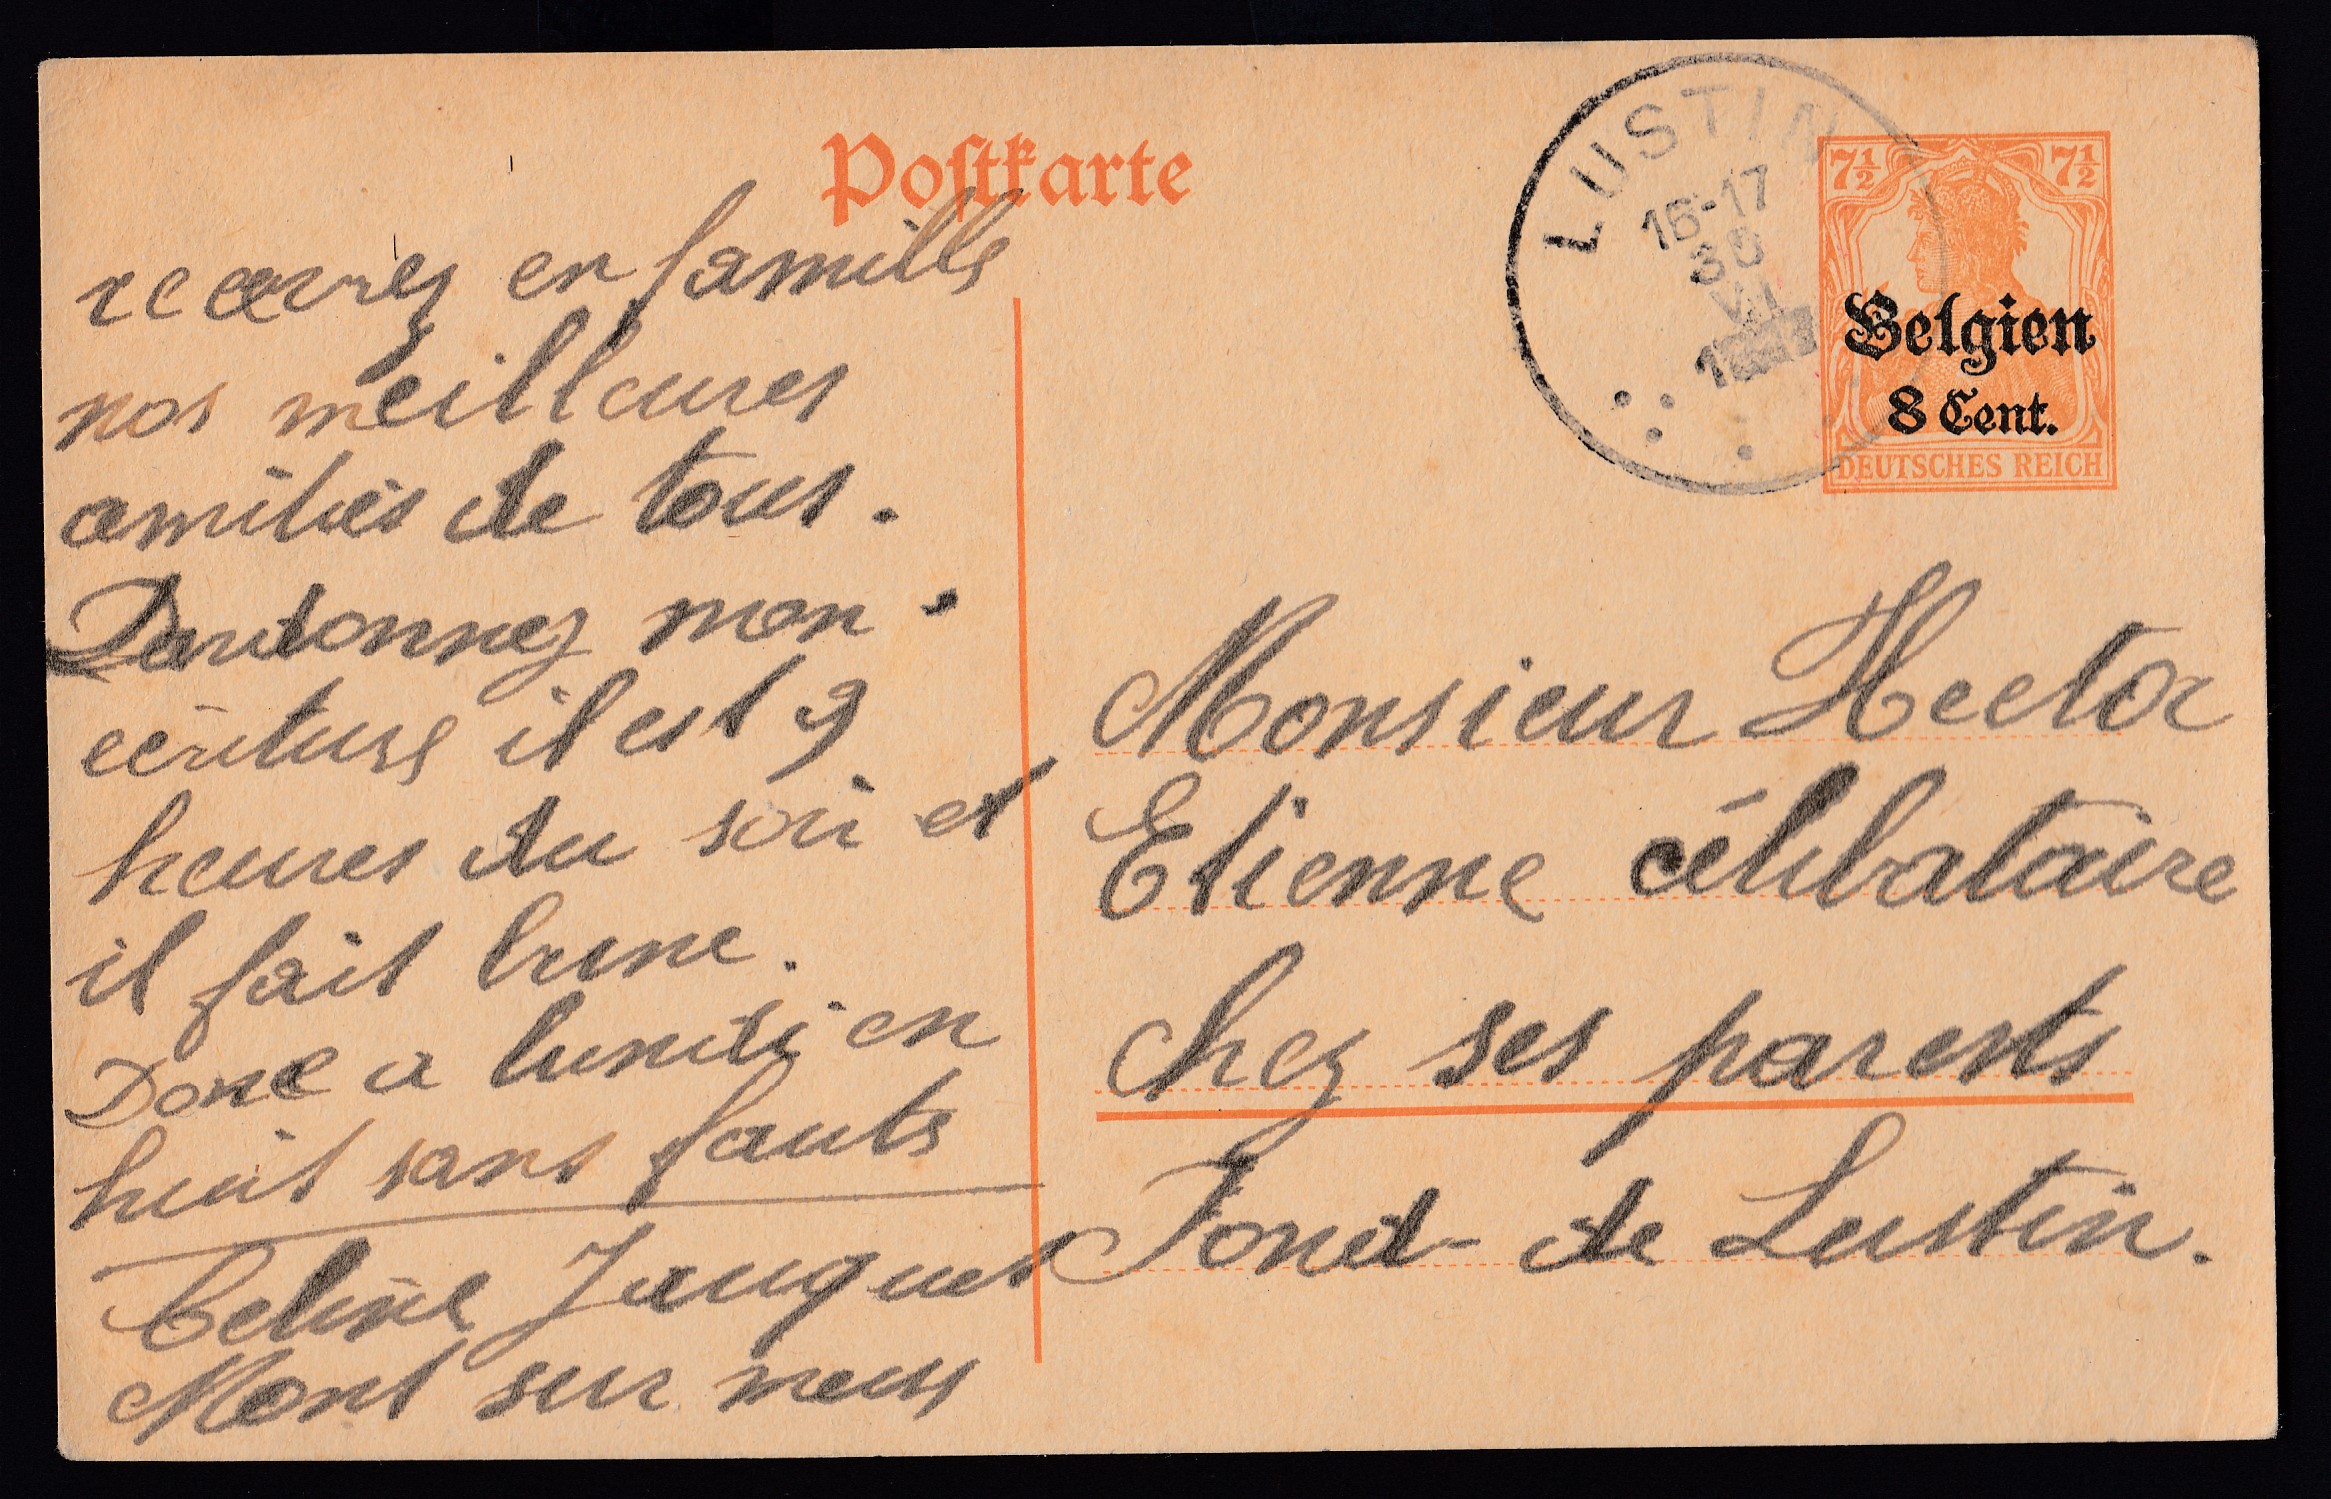 Postkarte
LUSTIN
16-17
30
VII
7½ 7½
Belgien
8 Cent.
DEUTSCHES REICH
recevez en famille
nos meilleures
amitiés de tous.
Pardonnez mon
écriture il est 9
heures du soir et
il fait brune.
Donc a lundi en
huit sans faute
Celine Jauquet
Mont sur meuse
Monsieur Hector
Etienne célibataire
chez ses parents
Fond-de Lustin.